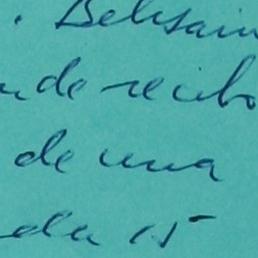 . Belisain
nde recibo
de una
da 15